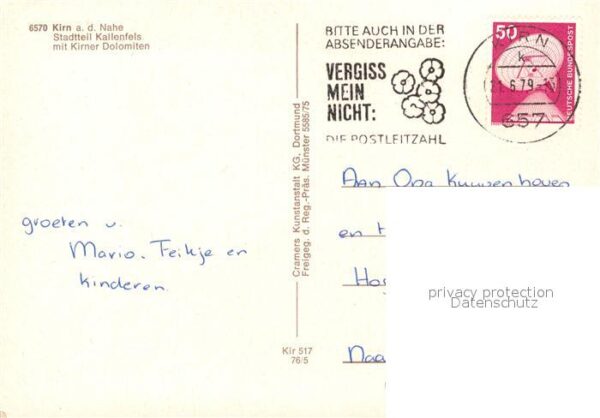 6570 Kirn a. d. Nahe
Stadtteil Kallenfels
mit Kirner Dolomiten
BITTE AUCH IN DER
ABSENDERANGABE:
VERGISS
MEIN
NICHT:
DIE POSTLEITZAHL
50
DEUTSCHE BUNDESPOST
KIRN
k
21.6.79
657
Cramers Kunstanstalt KG, Dortmund
Freigeg. d. Reg.-Präs. Münster 5585/75
groeten v.
Mario. Feikje en
kinderen
Aan Opa Kuuvenhoven
en
privacy protection
Datenschutz
Kir 517
76/5